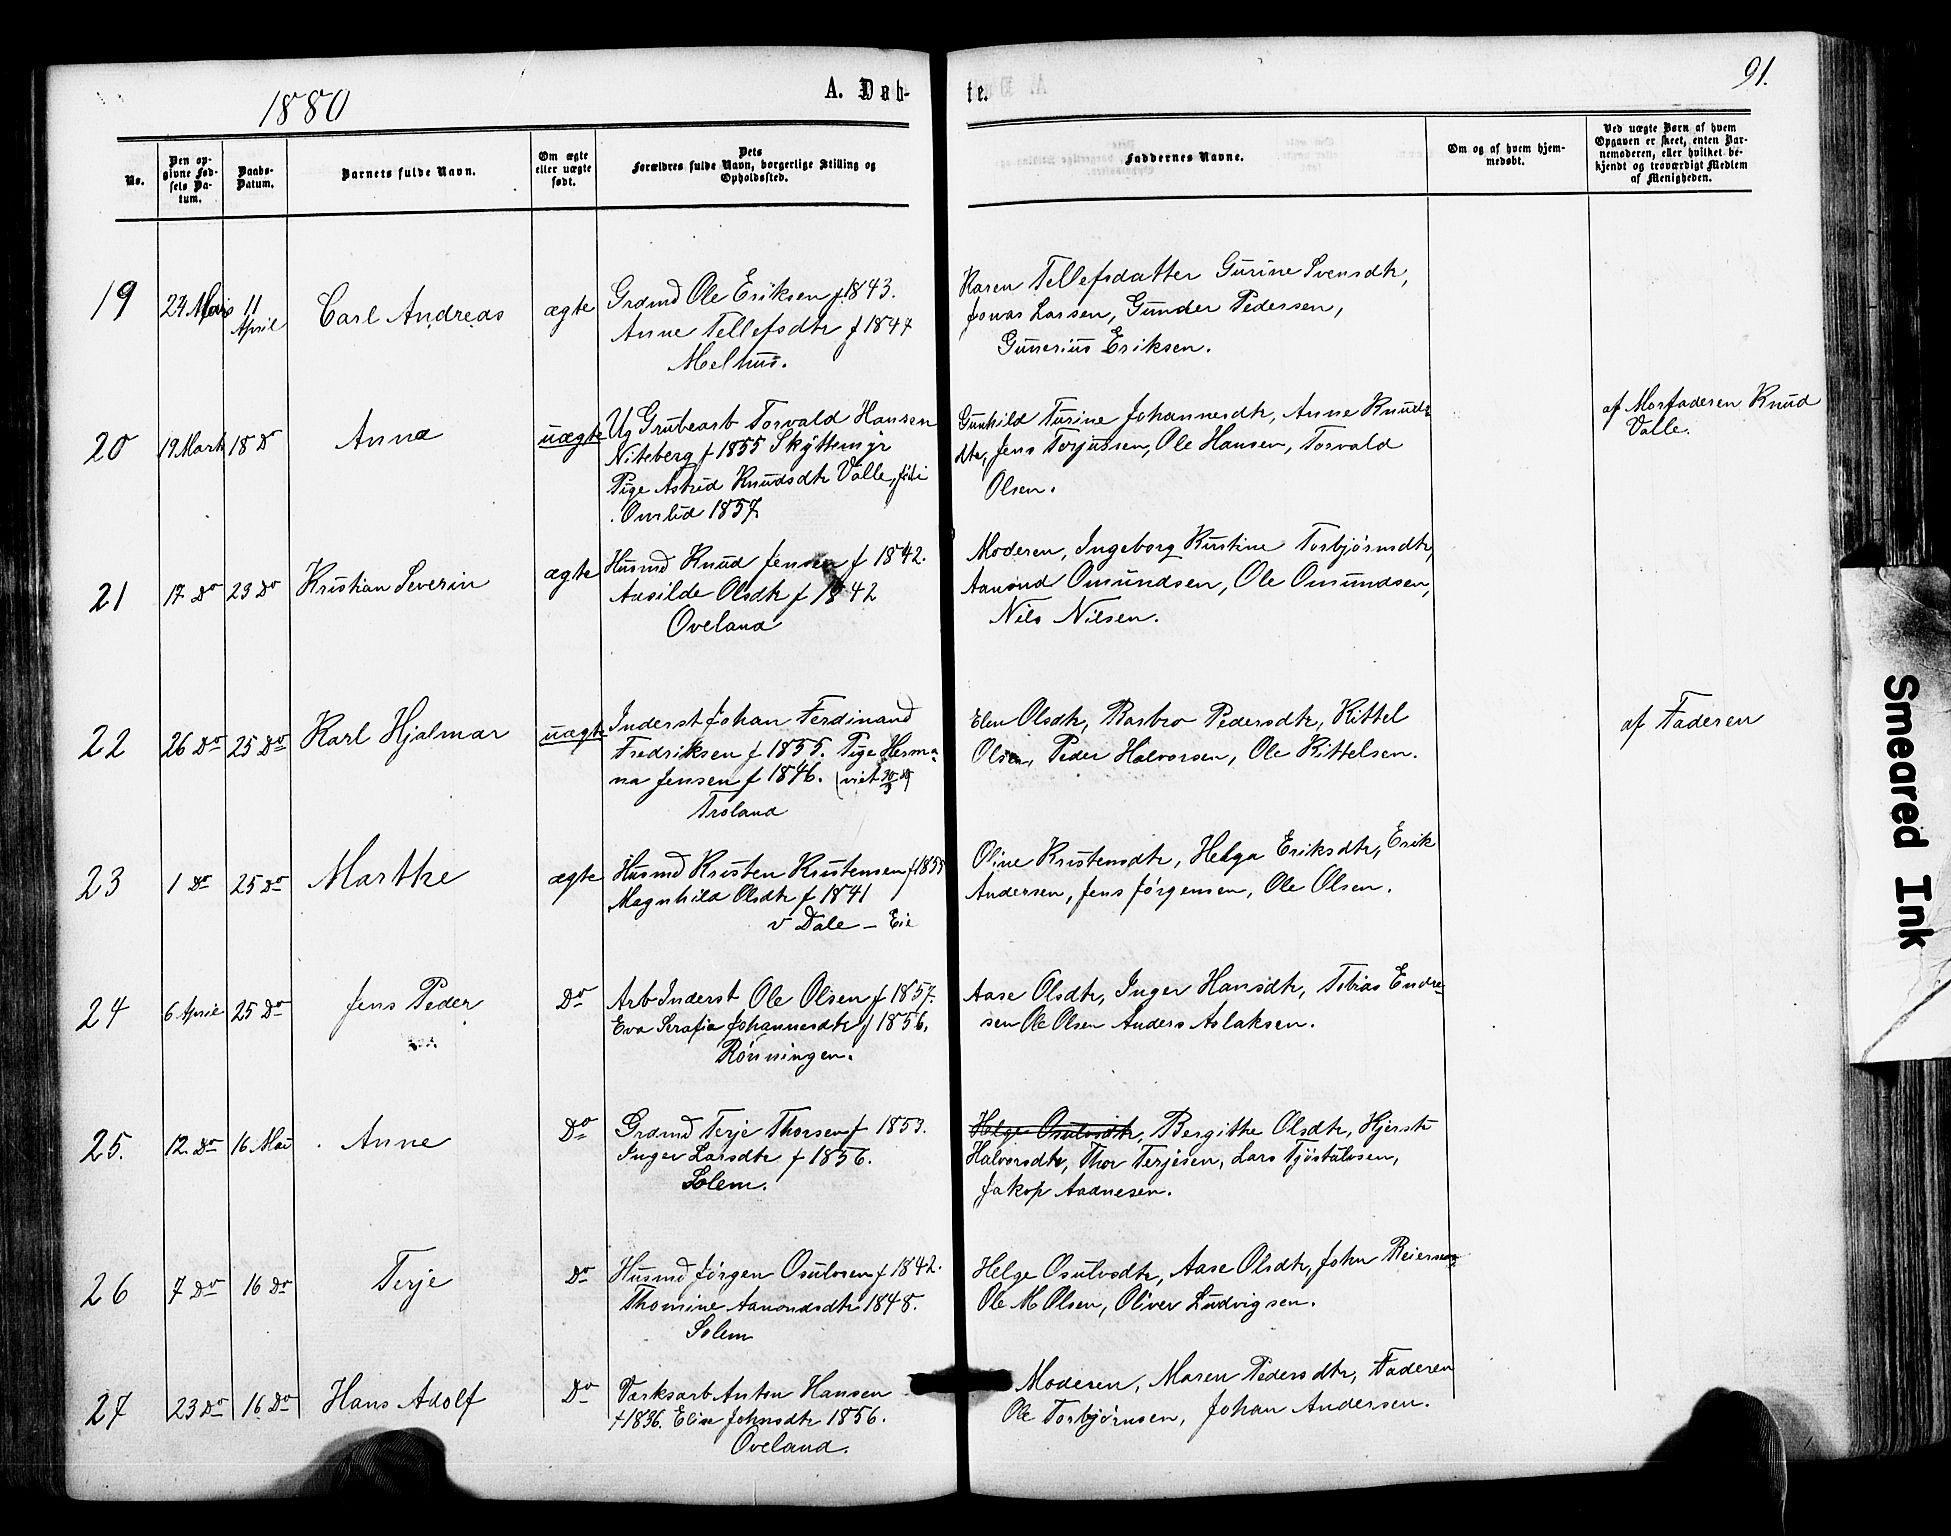 1880
A. Dab-
te.
91.
No.
Den op-
givne Fød-
sels Da-
tum.
Daabs-
Datum.
Barnets fulde Navn.
Om ægte
eller uægte
født.
Dets
Forældres fulde Navn, borgerlige Stilling og
Opholdssted.
Faddernes Navne.
Om og af hvem hjem-
medøbt.
Ved uægte Børn af hvem
Opgaven er skeet, enten Bar-
nemoderen, eller hvilket be-
kjendt og troværdigt Medlem
af Menigheden.
19
11
April
Carl Andreas
ægte
Grdmd Ole Eriksen f 1843.
Anne Tellefsdtr f 1844
Melhus.
Karen Tellefsdatter Gurine Svensdtr,
Jonas Larsen, Gunder Pedersen,
Gunerius Eriksen.
20
19 Marts
18 Do
Anna
uægte
Ug Grubearb Torvald Hansen
Niteberg f 1855 Skyttemyr
Pige Astrid Knudsdtr Valle, født i
Omlid 1857
Gunhild Turine Johannesdtr, Anne Knuds-
dtr, Jens Torjussen, Ole Hansen, Torvald
Olsen.
af Morfaderen Knud
Valle.
21
17 Do
23 Do
Kristian Severin
ægte
Husmd Knud Jensen f 1842.
Aasilde Olsdtr f 1842
Oveland
Moderen, Ingeborg Kirstine Torbjørnsdtr,
Aamund Omundsen, Ole Omundsen,
Nils Nilsen.
22
26 Do
25 Do
Karl Hjalmar
uægte
Inderst Johan Ferdinand
Fredriksen f 1855. Pige Herma-
na Jensen f 1846. (viet
Troland
Elen Olsdtr, Barbro Pedersdtr, Kittel
Olsen, Peder Halvorsen, Ole Kittelsen.
af Faderen
23
1 Do
25 Do
Marthe
ægte
Husmd Kristen Kristensen f 1855
Magnhild Olsdtr f 1841
v Dale - Eie
Oline Kristensdtr, Helga Eriksdtr, Erik
Andersen, Jens Jørgensen, Ole Olsen.
24
6 April
25 Do
Jens Peder
Do
Arb Inderst Ole Olsen f 1857.
Eva Serafia Johannesdtr f 1856.
Rønningen.
Aase Olsdtr, Inger Hansdtr, Tobias Endre-
sen Ole Olsen Anders Aslaksen.
25.
12. Do
16 Mai
Anne
Do
Grdmd Terje Thorsen f 1853.
Inger Larsdtr f 1856.
Solem.
Helge Osulvsdtr, Bergithe Olsdtr, Kjersti
Halvorsdtr, Thor Terjesen, Lars Tjøstulvsen,
Jakop Aadnesen.
26
7 Do
16 Do
Terje
Do
Husmd Jørgen Osulvsen f 1842.
Thomine Aamondsdtr 1848.
Solem
Helge Osulvsdtr, Aase Olsdtr, John Reiersen,
Ole M Olsen, Oliver Ludvigsen.
27
23 Do
16 Do
Hans Adolf
Do
Værksarb Anton Hansen
f 1836. Elise Johnsdtr 1856.
Oveland.
Moderen, Maren Pedersdtr, Faderen
Ole Torbjørnsen, Johan Andersen.
Smeared Ink